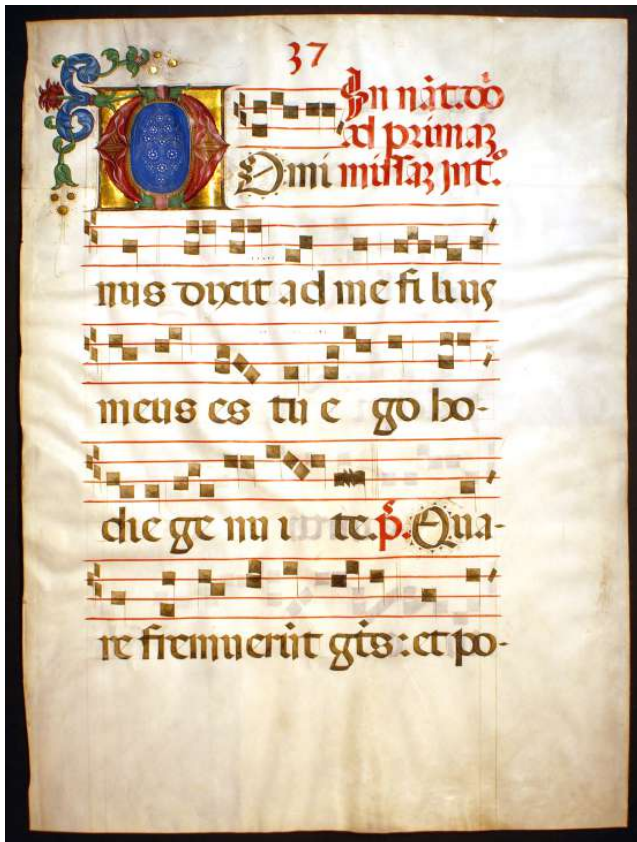 37
In nat. do
ad primaz
Omi missaz int.
nus dixit ad me filius
meus es tu e go ho-
die ge nu i te. p. Qua-
re fremuerut gtes: et po-